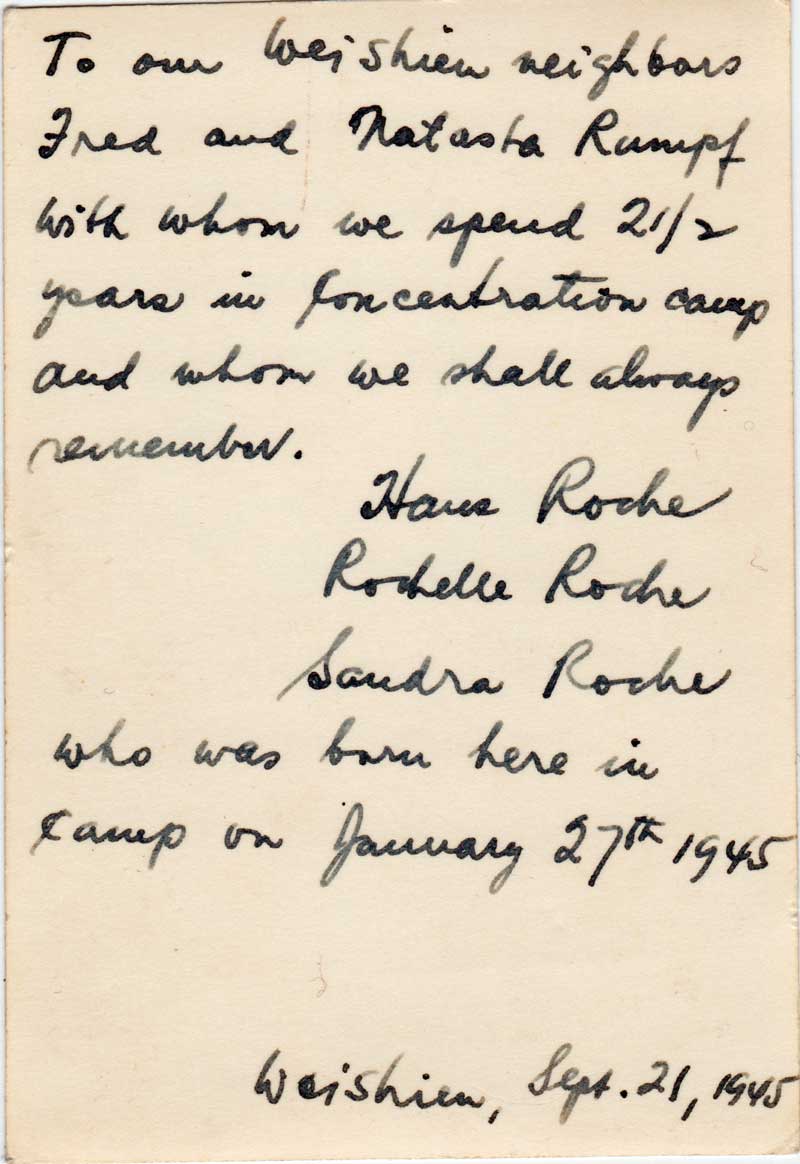 To our Weishien neighbors
Fred and Natasha Rumpf
with whom we spend 2 1/2
years in Concentration camp
and whom we shall always
remember.
Hans Roche
Rochelle Roche
Sandra Roche
who was born here in
Camp on January 27th 1945
Weishien, Sept. 21, 1945